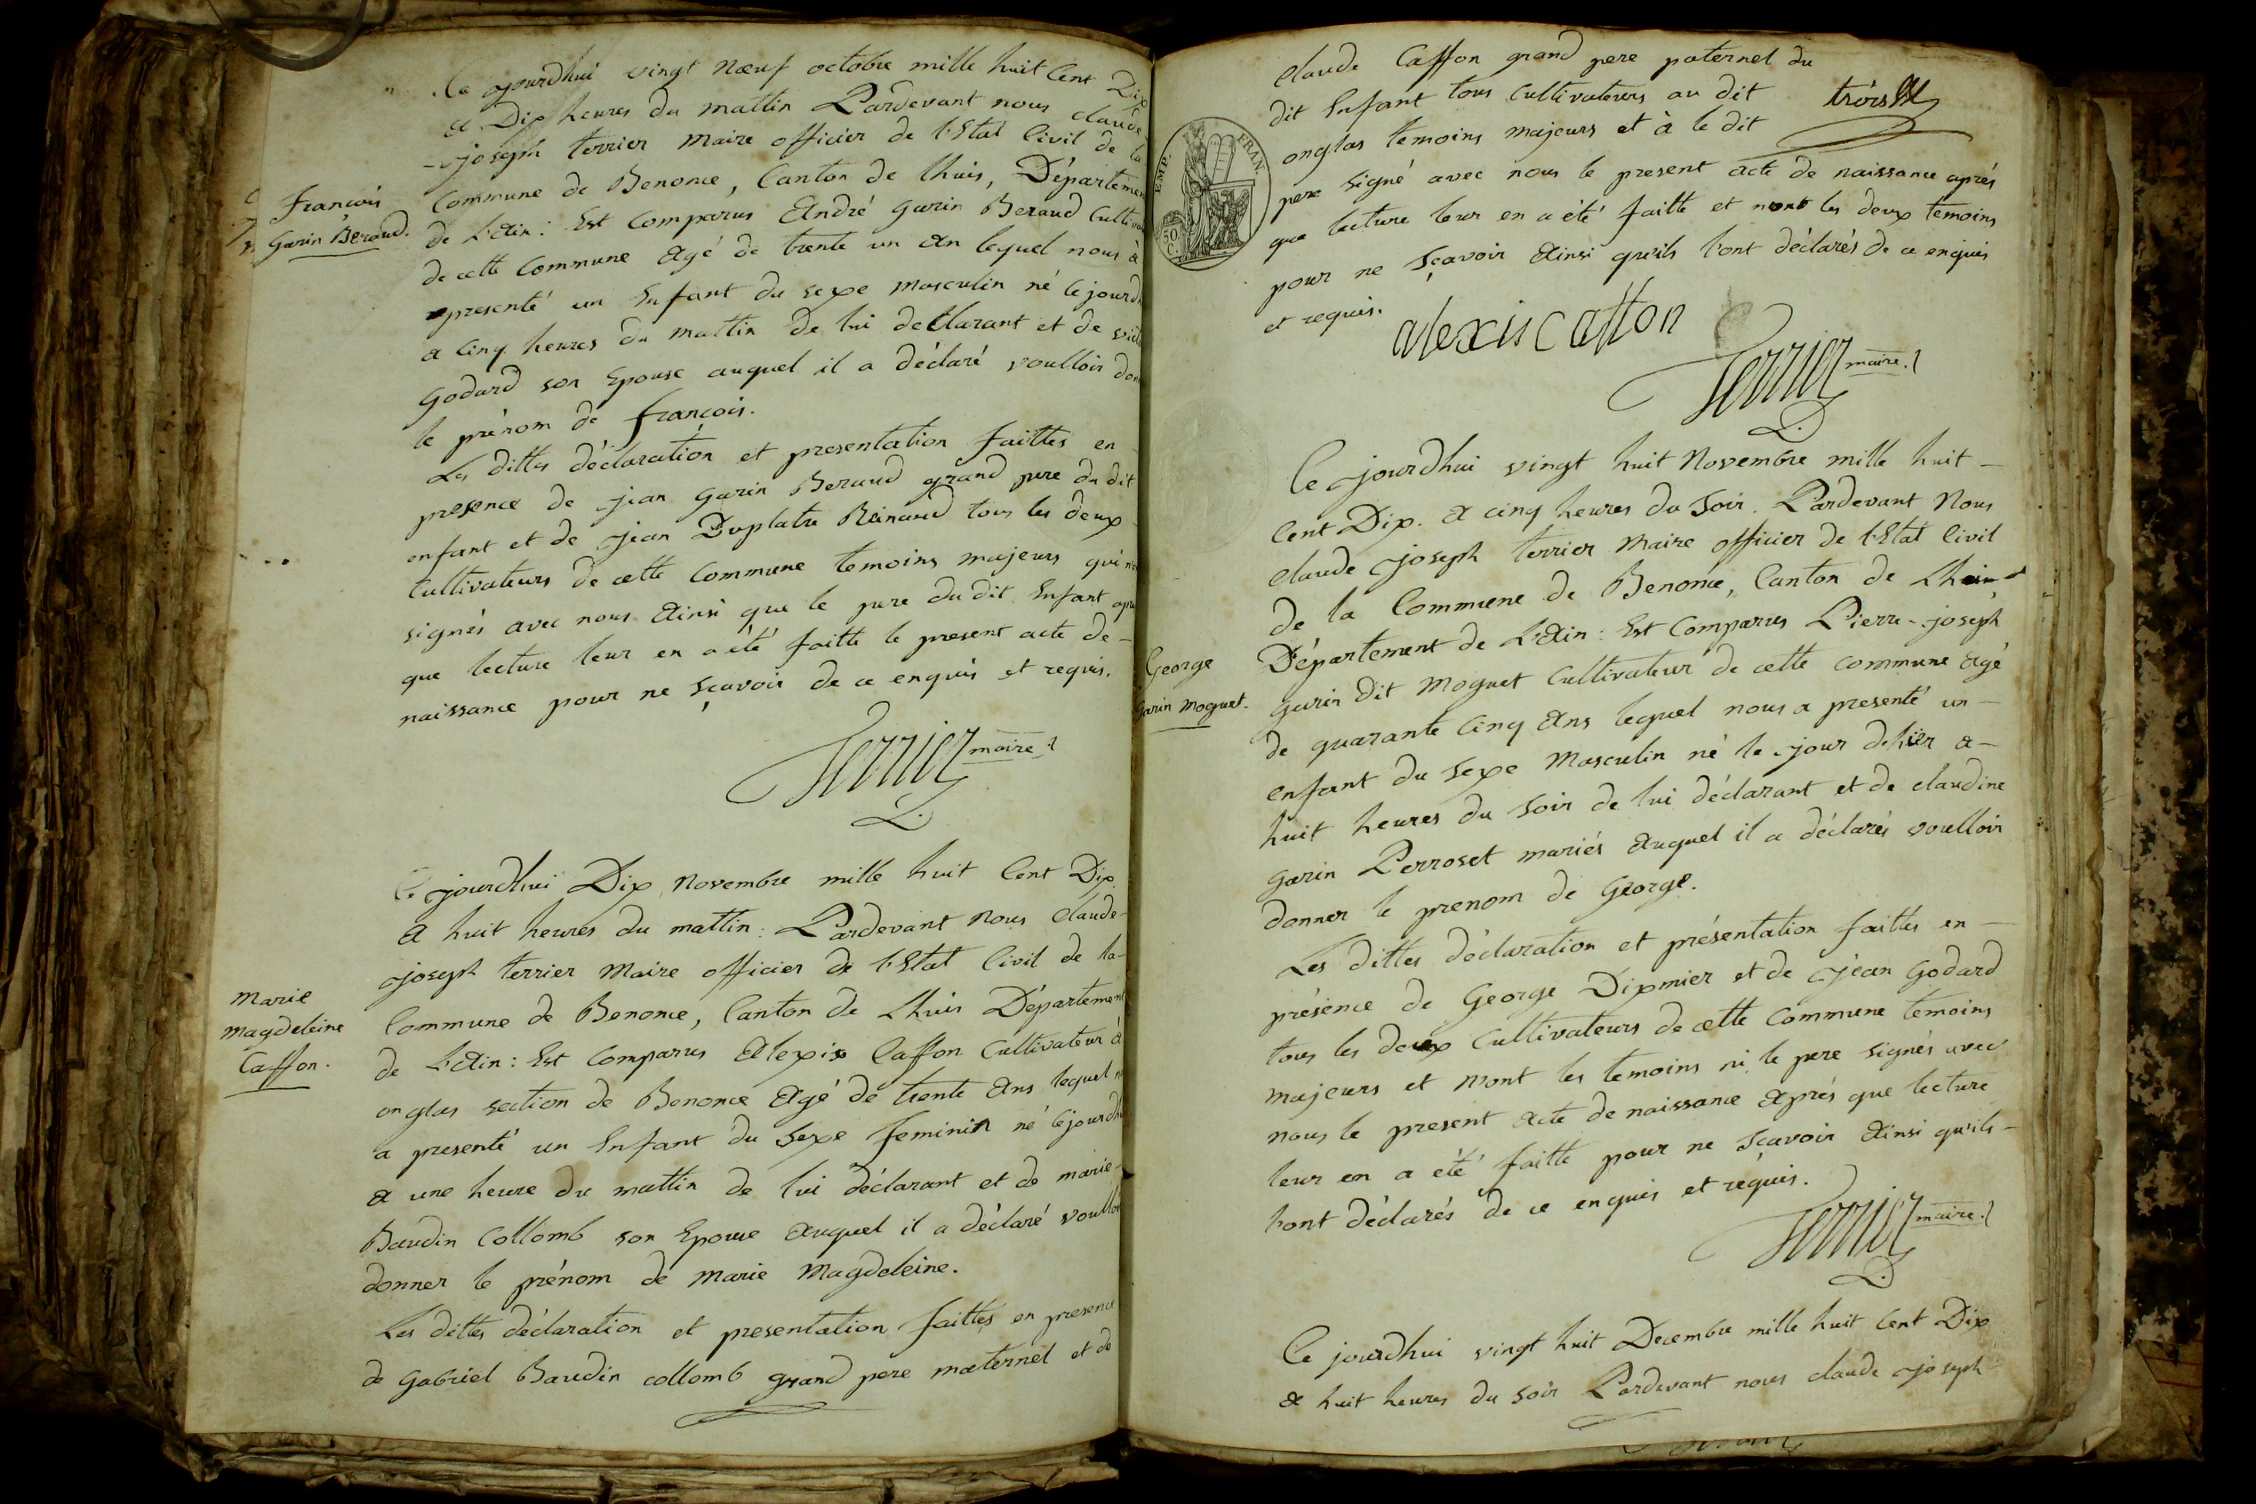 Ce ajourdhui vingt nœuf octobre mille huit Cent Dix
a Dix heures du mattin Pardevant nous claude
joseph terrier Maire officier de l'Etat Civil de la
François
Garin Béraud.
Commune de Benonce, Canton de Lhuis, Département
de L'Ain: Est Comparus André Garin Beraud Cultiv
de cette Commune Agé de trente un An lequel nous à
presenté un Enfant du sexe masculin né cejourd
a Cinq heures du mattin de lui declarant et de
Godard son Epouse auquel il a déclaré voulloir don
le prénom de françois.
Les dittes déclaration et presentation faittes en
presence de jean Garin Beraud grand pere du dit
enfant et de jean Duplatre Reinaud tous les deux
Cultivateurs de cette Commune temoins majeurs qui n'
signés avec nous Ainsi que le pere du dit Enfant apr
que lecture leur en a été faitte le present acte de-
naissance pour ne sçavoir de ce enquis et requis.
Terrier maire
Ce jourdhui Dix Novembre mille huit Cent Dix
A huit heures du mattin: Pardevant Nous Claude-
joseph terrier Maire officier de l'Etat Civil de la-
Marie
Magdeleine
Caffon.
Commune de Benonce, Canton de Lhuis Département
de L'Ain: Est Comparus Alexis Caffon Cultivateur à
onglas section de Benonce Agé de trente Ans lequel n
a presenté un Enfant du Sexe feminin né cejourdh
a une heure du mattin de lui déclarant et de marie-
Baudin Collomb son Epouse Auquel il a déclaré voullo
donner le prénom de Marie Magdeleine.
Les dittes déclaration et presentation faittes en presence
de Gabriel Baudin collomb grand pere maternel et de
Claude Caffon grand pere paternel du
dit Enfant tous Cultivateurs au dit
trois
onglas temoins majeurs et à le dit
EMP. FRAN.
50 C.
pere signé avec nous le present acte de naissance après
que lecture leur en a été faitte et nont les deux temoins
pour ne sçavoir Ainsi qu'ils l'ont déclarés de ce enquis
et requis.
alexis caffon
Terrier maire
Ce jourdhui vingt huit Novembre mille huit-
Cent Dix. A cinq heures du Soir. Pardevant Nous
Claude joseph terrier Maire officier de l'Etat Civil
de la Commune de Benonce, Canton de Lhuis
Département de L'Ain: Est Comparus Pierre-joseph
George
Garin Moguet.
garin Dit Moguet Cultivateur de cette commune Agé
de quarante Cinq Ans lequel nous a presenté un-
enfant du Sexe Masculin né le jour dehier a-
huit heures du Soir de lui déclarant et de claudine
garin Perroset mariés Auquel il a déclarés voulloir
donner le prenom de George.
Les dittes déclaration et présentation faittes en-
présence de George Dixmier et de jean Godard
tous les deux Cultivateurs de cette Commune temoins
majeurs et nont les temoins ni le pere signés avec
nous le present Acte de naissance Après que lecture
leur en a été faitte pour ne sçavoir Ainsi qu'ils-
l'ont déclarés de ce enquis et réquis.
Terrier maire
Ce jourdhui vingt huit Decembre mille huit Cent Dix
a huit heures du soir Pardevant nous claude joseph